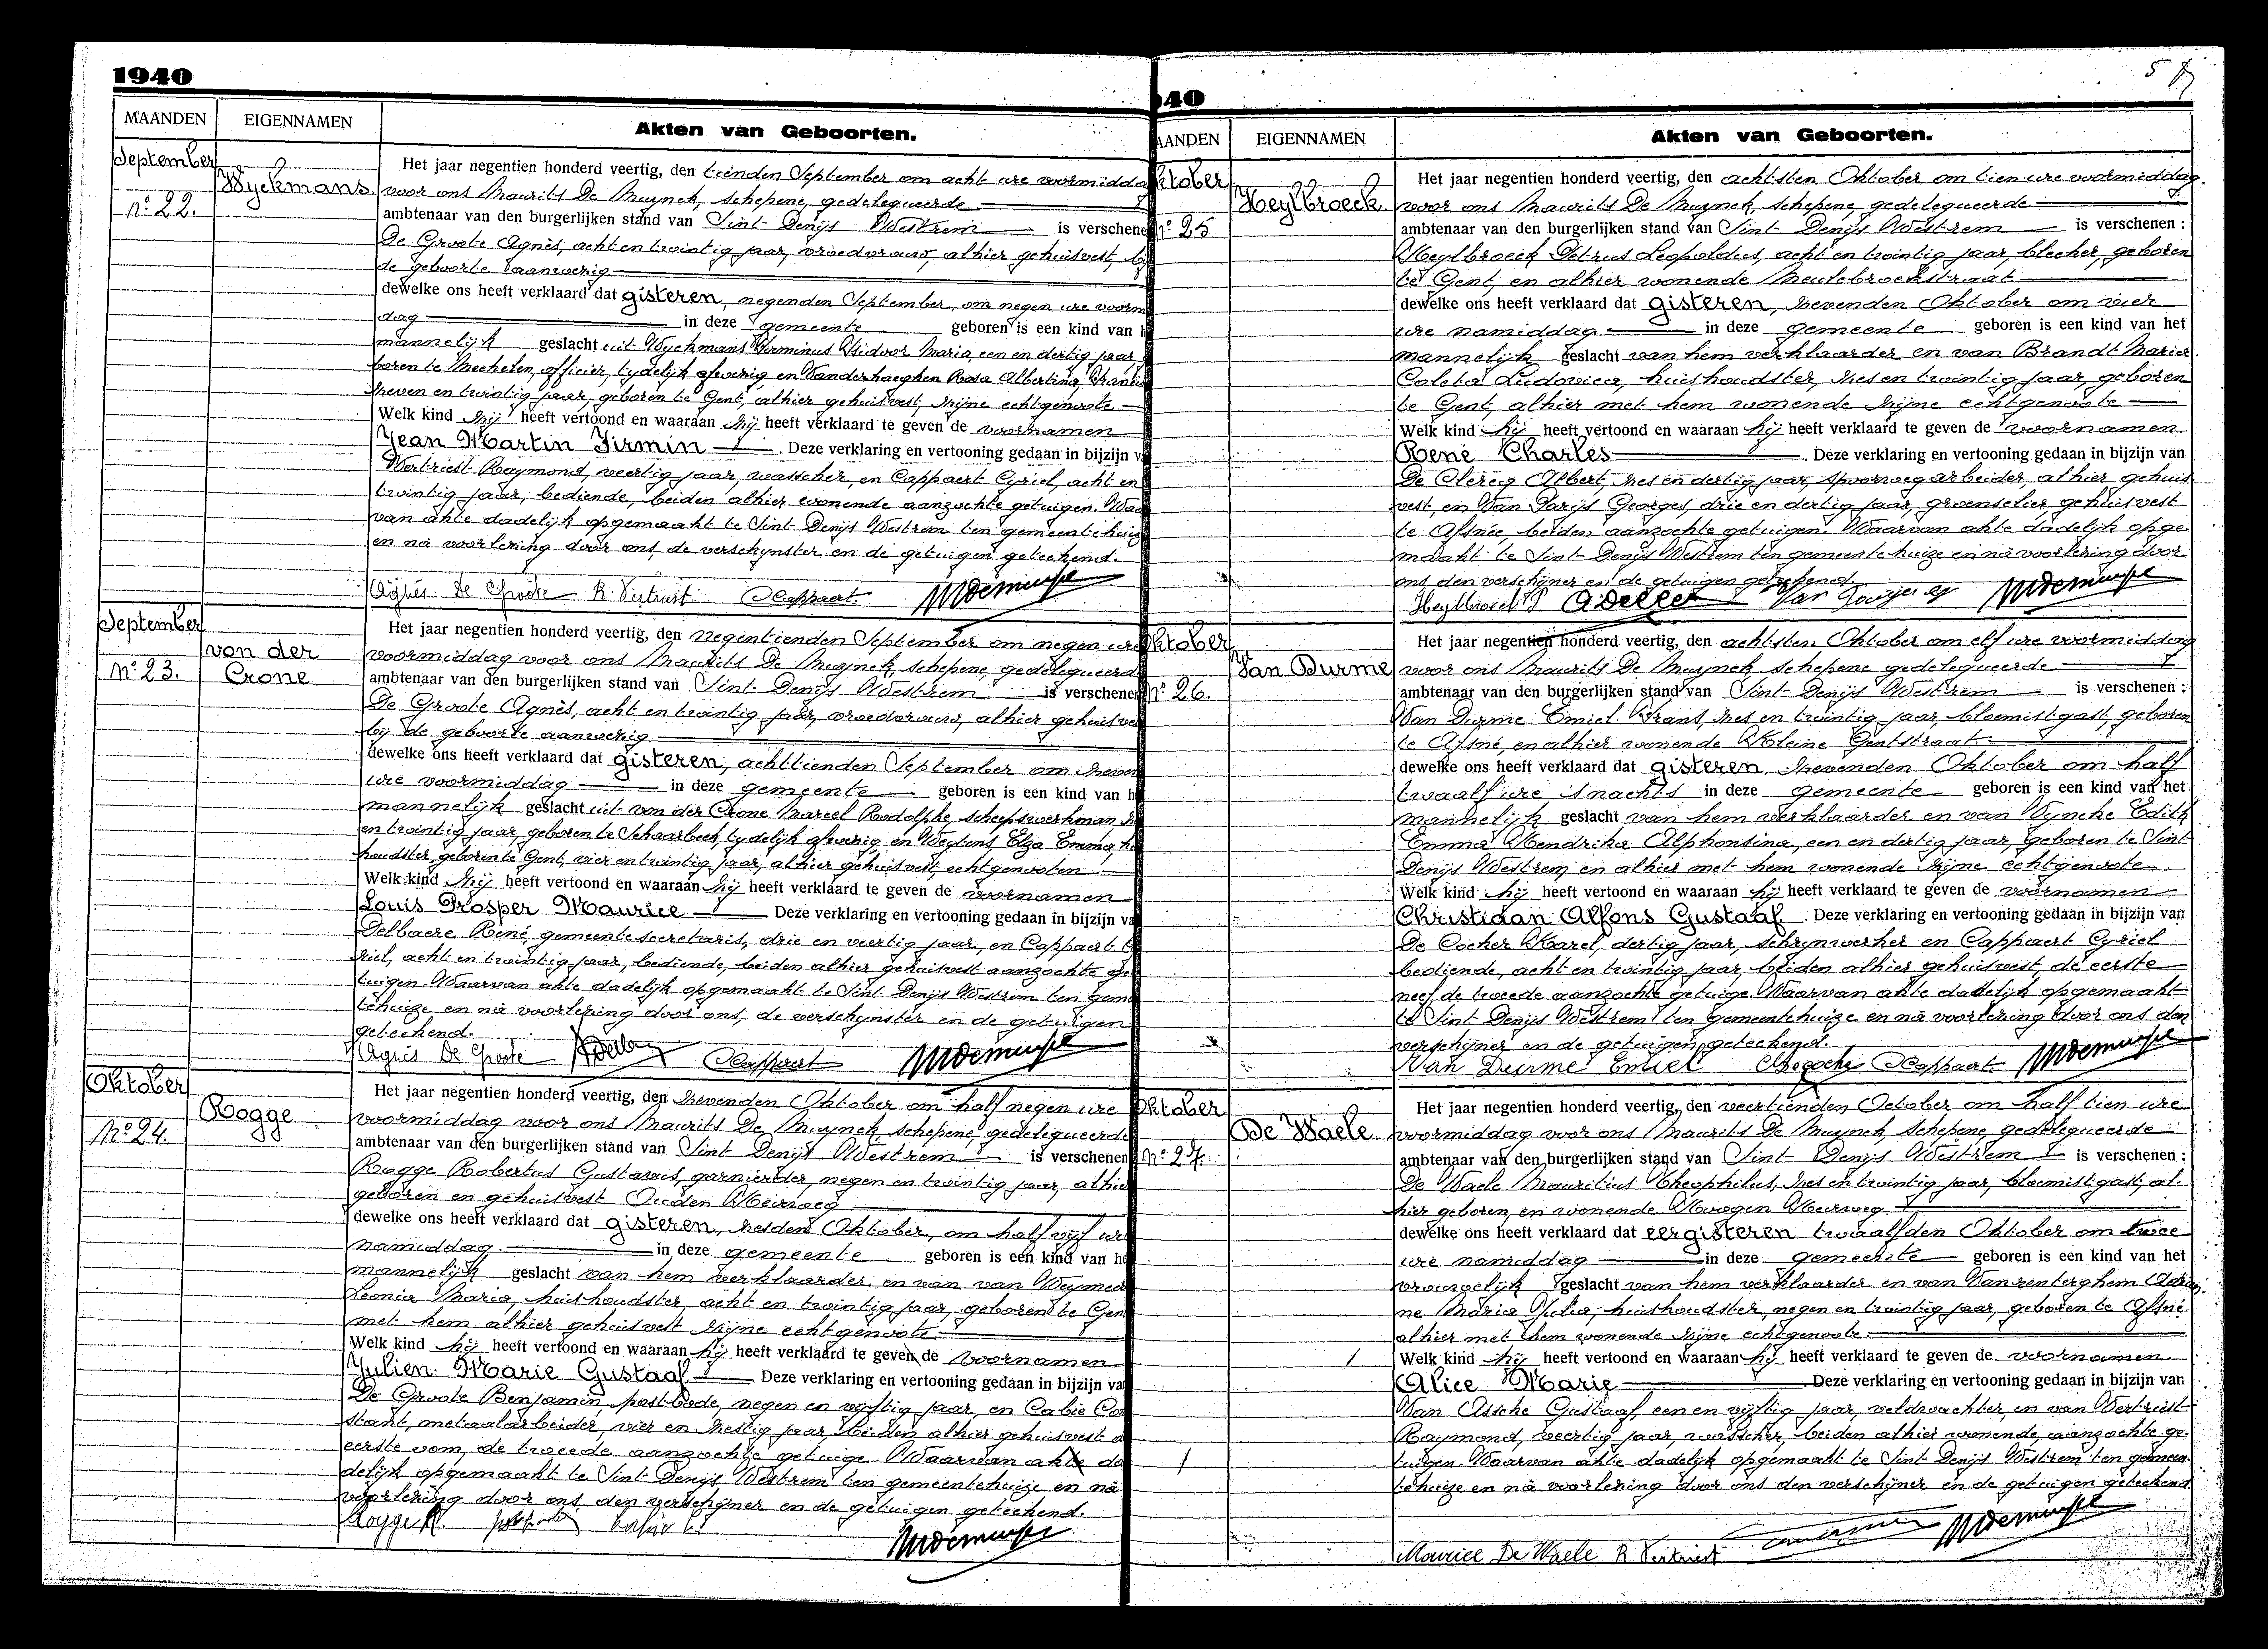 1940
MAANDEN EIGENNAMEN Akten van Geboorten.
September
Wyckmans
No 22.
Het jaar negentien honderd veertig, den tienden September om acht ure voormidda
voor ons Maurits De Muynck, schepene, gedelegueerde
ambtenaar van den burgerlijken stand van Sint Denijs Westrem is verschene
De Groote Agnès, acht en twintig jaar, vroedvrouw, alhier gehuisvest, by
de geboorte aanwezig
dewelke ons heeft verklaard dat gisteren, negenden September, om negen ure voorm
dag in deze gemeente geboren is een kind van h
mannelijk geslacht uit Wyckmans Firminus Isidoor Maria, een en dertig jaar
boren te Mechelen, officier, tydelijk afwezig en Vanderhaeghen Rosa Albertina
zeven en twintig jaar, geboren te Gent, alhier gehuisvest, zijne echtgenoote
Welk kind zij heeft vertoond en waaraan zij heeft verklaard te geven de voornamen
Jean Martin Firmin. Deze verklaring en vertooning gedaan in bijzijn v
Vertriest Raymond, veertig jaar, wasscher, en Cappaert Cyriel, acht en
twintig jaar, bediende, beiden alhier wonende aanzochte getuigen. Waa
van akte dadelijk opgemaakt te Sint Denijs Westrem ten gemeentehuize
en na voorlezing door ons, de verschynster en de getuigen geteekend.
Agnès De Groote R. Vertriest Cappaert MDemuynck
September
von der
Crone
No 23.
Het jaar negentien honderd veertig, den negentienden September om negen ure
voormiddag voor ons Maurits De Muynck, schepene, gedelegueerde
ambtenaar van den burgerlijken stand van Sint Denijs Westrem is verschenen
De Groote Agnès, acht en twintig jaar, vroedvrouw, alhier gehuisve
bij de geboorte aanwezig
dewelke ons heeft verklaard dat gisteren, achttienden September om zeven
ure voormiddag in deze gemeente geboren is een kind van h
mannelijk geslacht uit von der Crone Marcel Rodolphe, scheepswerkman
en twintig jaar, geboren te Schaarbeek, tydelijk afwezig, en Weytens, Elza Emma, hu
houdster, geboren te Gent, vier en twintig jaar, alhier gehuisvest, echtgenooten
Welk kind zij heeft vertoond en waaraan zij heeft verklaard te geven de voornamen
Louis Prosper Maurice Deze verklaring en vertooning gedaan in bijzijn va
Delbaere René, gemeentesecretaris, drie en veertig jaar, en Cappaert C
riel, acht en twintig jaar, bediende, beiden alhier gehuisvest aanzochte ge
tuigen. Waarvan akte dadelijk opgemaakt te Sint Denijs Westrem ten geme
tehuize en na voorlezing door ons, de verschynster en de getuigen
geteekend.
Agnès De Groote Cappaert MDemuynck
Oktober
Rogge
No 24.
Het jaar negentien honderd veertig, den zevenden Oktober om half negen ure
voormiddag voor ons Maurits De Muynck, schepene, gedelegueerde
ambtenaar van den burgerlijken stand van Sint Denijs Westrem is verschenen
Rogge Robertus Gustavus, garnierder, negen en twintig jaar, alhier
geboren en gehuisvest Ouden Heirweg
dewelke ons heeft verklaard dat gisteren, zesden Oktober, om half vijf ure
namiddag in deze gemeente geboren is een kind van he
mannelijk geslacht van hem verklaarder en van van
Leonia Maria, huishoudster, acht en twintig jaar, geboren te Gen
met hem alhier gehuisvest zijne echtgenoote
Welk kind hij heeft vertoond en waaraan hij heeft verklaard te geven de voornamen
Julien Marie Gustaaf Deze verklaring en vertooning gedaan in bijzijn va
De Groote Benjamin, postbode, negen en vijftig jaar, en Cabie Con
stant, metaalarbeider, vier en zestig jaar, beiden alhier gehuisvest d
eerste oom, de tweede aanzochte getuige. Waarvan akte da
delijk opgemaakt te Sint Denijs Westrem ten gemeentehuize en na
voorlezing door ons, den verschijner en de getuigen geteekend.
Rogge R. MDemuynck
5
40
AANDEN EIGENNAMEN Akten van Geboorten.
ktober
Heylbroeck
No 25
Het jaar negentien honderd veertig, den achtsten Oktober om tien ure voormiddag
voor ons Maurits De Muynck, schepene, gedelegueerde
ambtenaar van den burgerlijken stand van Sint Denijs Westrem is verschenen :
Heylbroeck Petrus Leopoldus, acht en twintig jaar, bleeker, geboren
te Gent, en alhier wonende Meulebroekstraat
dewelke ons heeft verklaard dat gisteren, zevenden Oktober om vier
ure namiddag in deze gemeente geboren is een kind van het
mannelijk geslacht van hem verklaarder en van Brandt Maria
Coleta Ludovica, huishoudster, zes en twintig jaar, geboren
te Gent, alhier met hem wonende zijne echtgenoote
Welk kind hij heeft vertoond en waaraan hij heeft verklaard te geven de voornamen
René Charles. Deze verklaring en vertooning gedaan in bijzijn van
De Clercq Albert, zes en dertig jaar, spoorwegarbeider, alhier gehuis
vest, en Van Parijs Georges, drie en dertig jaar, groenselier gehuisvest
te Afsnee, beiden aanzochte getuigen. Waarvan akte dadelijk opge
maakt te Sint Denijs Westrem ten gemeentehuize en na voorlezing door
ons, den verschijner en de getuigen geteekend.
Heylbroeck P MDemuynck
ktober
Van Durme
No 26.
Het jaar negentien honderd veertig, den achtsten Oktober om elf ure voormiddag
voor ons Maurits De Muynck, schepene gedelegueerde
ambtenaar van den burgerlijken stand van Sint Denijs Westrem is verschenen :
Van Durme Emiel Frans, zes en twintig jaar, bloemistgast, geboren
te Afsné, en alhier wonende Kleine Gentstraat.
dewelke ons heeft verklaard dat gisteren, zevenden Oktober om half
twaalf ure 's nachts in deze gemeente geboren is een kind van het
mannelijk geslacht van hem verklaarder en van Wyncke Edith
Emma Hendrika Alphonsina, een en dertig jaar, geboren te Sint
Denijs Westrem en alhier met hem wonende zijne echtgenoote
Welk kind hij heeft vertoond en waaraan hij heeft verklaard te geven de voornamen
Christiaan Alfons Gustaaf. Deze verklaring en vertooning gedaan in bijzijn van
De Cocker Karel, dertig jaar, schrynwerker en Cappaert Cyriel
bediende, acht en twintig jaar, beiden alhier gehuisvest, de eerste
neef de tweede aanzochte getuige. Waarvan akte dadelijk opgemaakt
te Sint Denijs Westrem ten gemeentehuize en na voorlezing door ons den
verschijner en de getuigen, geteekend.
Van Durme Emiel Cappaert MDemuynck
Oktober
De Waele
No 27.
Het jaar negentien honderd veertig, den veertienden October om half tien ure
voormiddag voor ons Maurits De Muynck, schepene, gedelegueerde
ambtenaar van den burgerlijken stand van Sint Denijs Westrem is verschenen :
De Waele Mauritius Theophilus, zes en twintig jaar, bloemistgast, al-
hier geboren en wonende Hoogen Heirweg
dewelke ons heeft verklaard dat eergisteren twaalfden Oktober om twee
ure namiddag in deze gemeente geboren is een kind van het
vrouwelijk geslacht van hem verklaarder en van Vanrenterghem Adrien
ne Maria Julia, huishoudster, negen en twintig jaar, geboren te Afsné
alhier met hem wonende zijne echtgenoote.
Welk kind hij heeft vertoond en waaraan hij heeft verklaard te geven de voornamen.
Alice Marie Deze verklaring en vertooning gedaan in bijzijn van
Van Assche Gustaaf, een en vijftig jaar, veldwachter, en van Vertriest
Raymond, veertig jaar, wasscher, beiden alhier wonende, aanzochte ge-
tuigen. Waarvan akte dadelijk opgemaakt te Sint Denijs Westrem ten gemeen-
tehuize en na voorlezing door ons den verschijner en de getuigen geteekend
Maurice De Waele R Vertriest MDemuynck